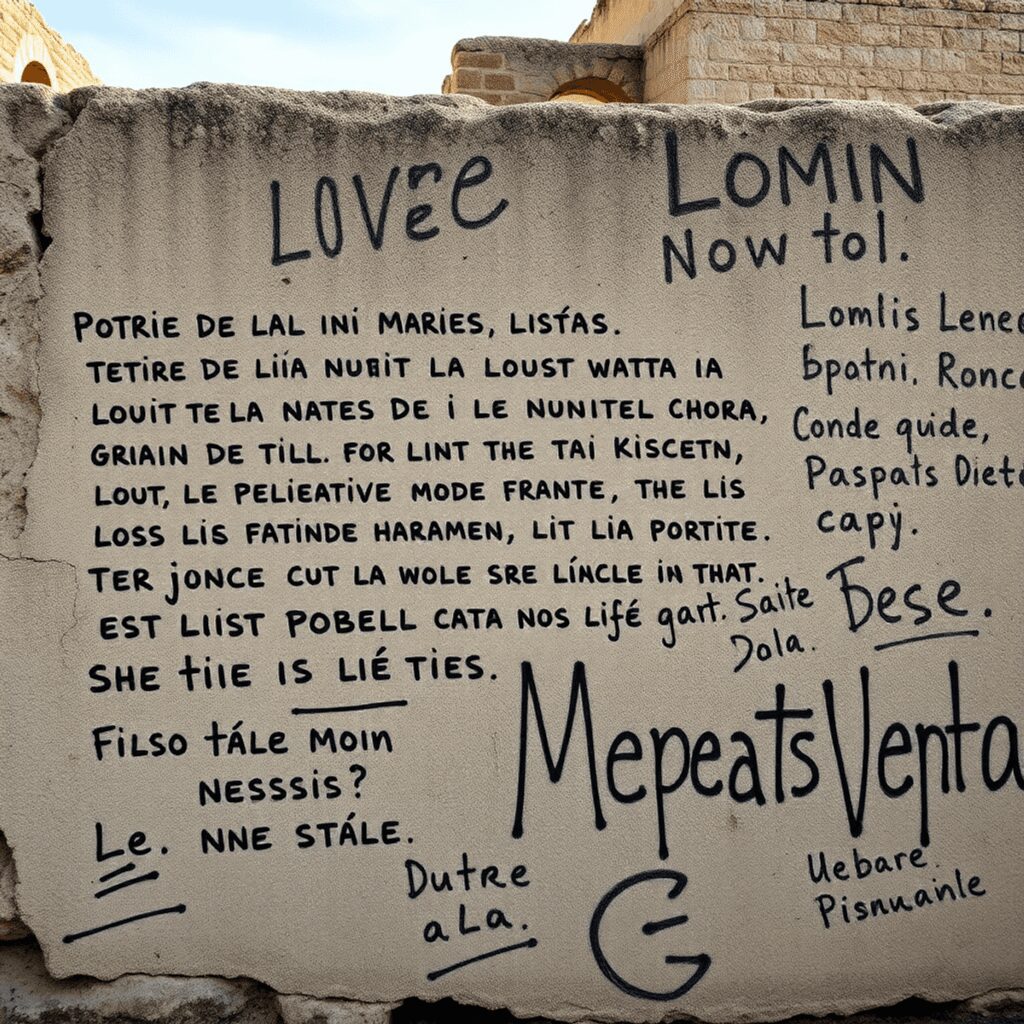 LOVEE
LOMIN
NOW tol.
POTRIE DE LAL INI MARIES, LISTAS.
TETIRE DE LIÍA NUBIT LA LOUST WATTA IA
LOUIT TE LA NATES DE I LE NUNITEL CHORA,
GRIAIN DE TILL. FOR LINT THE TAI KISCETN,
LOUT, LE PELIEATIVE MODE FRANTE, THE LIS
LOSS LIS FATINDE HARAMEN, LIT LIA PORTITE.
TER JONCE CUT LA WOLE SRE LÍNCLE IN THAT.
EST LIIST POBELL CATA NOS LIFÉ gart.
SHE TIIE IS LIÉ TIES.
Lomlis Lenec
bpatni. Ronce
Conde quide,
Paspats Diete
capy.
Saite
Dola.
Bese.
FILSO TÁLE MOIN
NESSSIS?
Le. NNE STÁLE.
Mepeats Venta
DUTRE
a La.
G
Uebare.
Pisnuanle